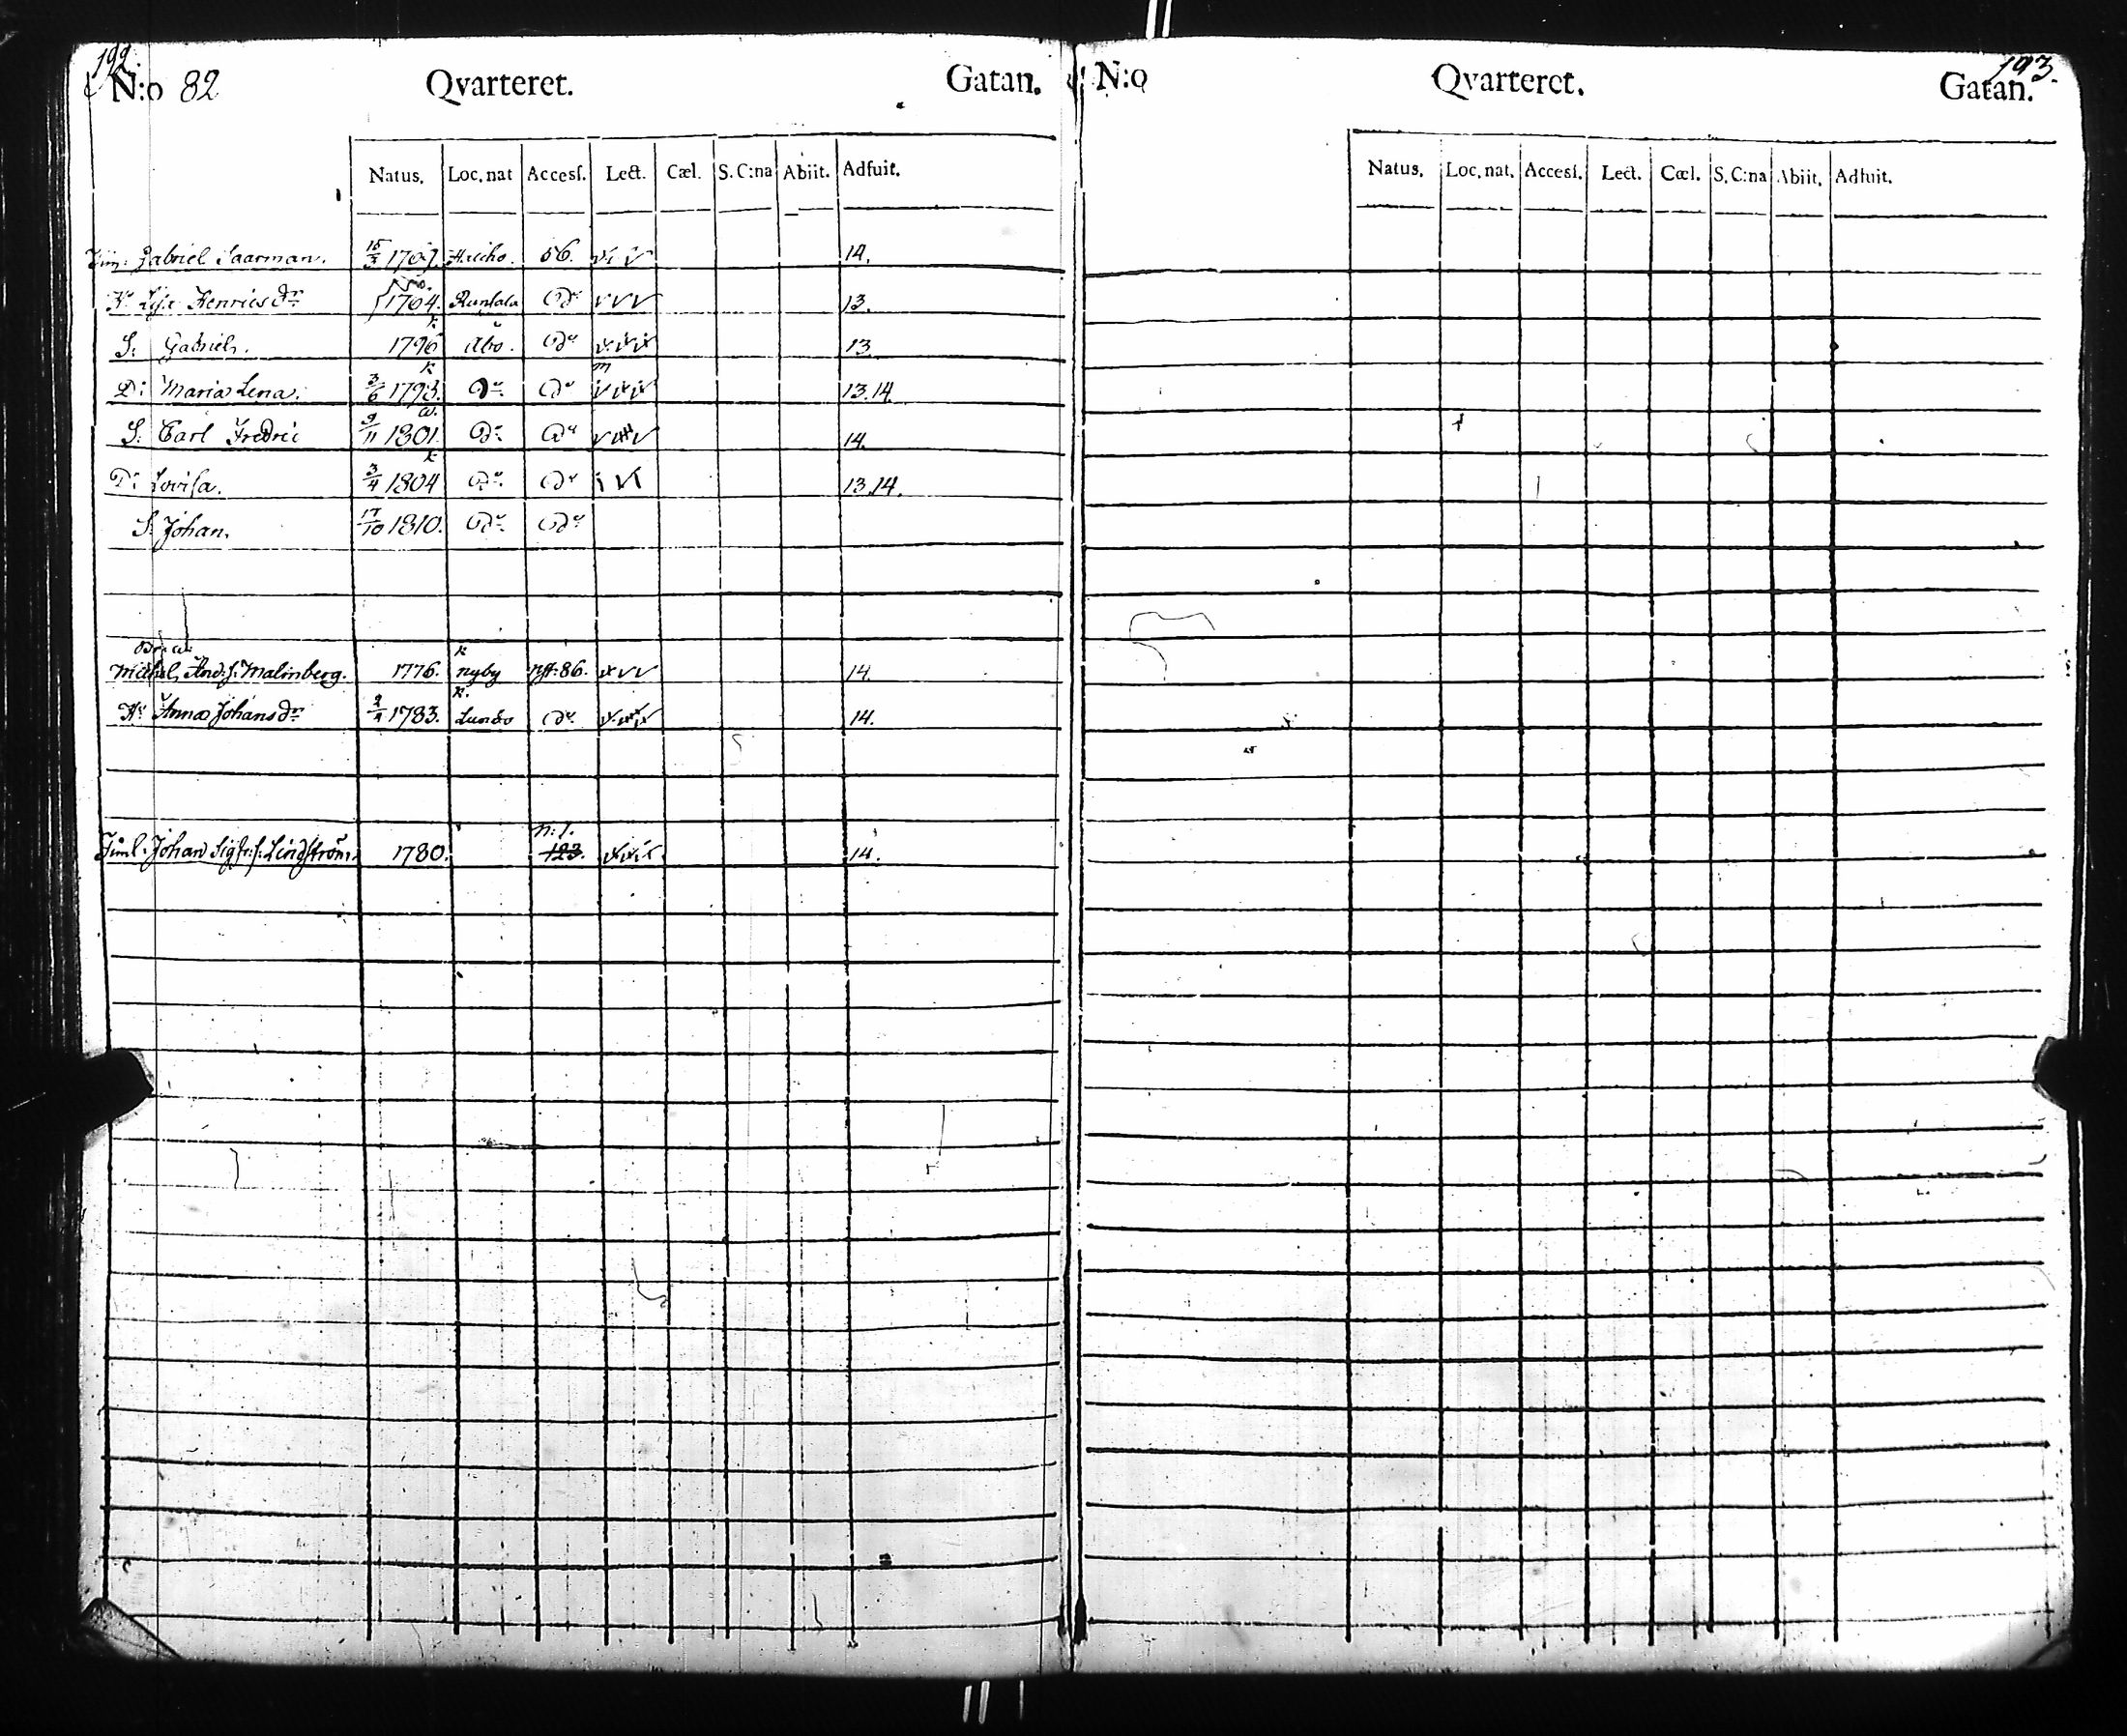 192.
N:o 82 Qvarteret. Gatan.
Natus. Loc. nat Accesſ. Lect. Cæl. S. C:na Abiit. Adfuit.
Gabriel Saarman. 15/3 56. 14.
H: Henrics dr 1764. 13.
S: Gabriel. 1796 Åbo. Do 13.
D: Maria Lena. 3/6 1793. Do Do 13.14.
S: Carl Fredric 9/11 1801. Do Do 14.
D: Lovisa. 3/4 1804 Do Do 13.14.
S: Johan. 17/10 1810. Do Do
Michel And:s: Malmberg. 1776. nyby 86. 14.
H: Anna Johans dr 2/4 1783. Lundo Do 14.
n: 1.
Timl: Johan Sigfr:s: Lindström. 1780. 123. 14.
193.
N:o Qvarteret. Gatan.
Natus. Loc. nat. Accesſ. Lect. Cæl. S. C:na Abiit. Adfuit.